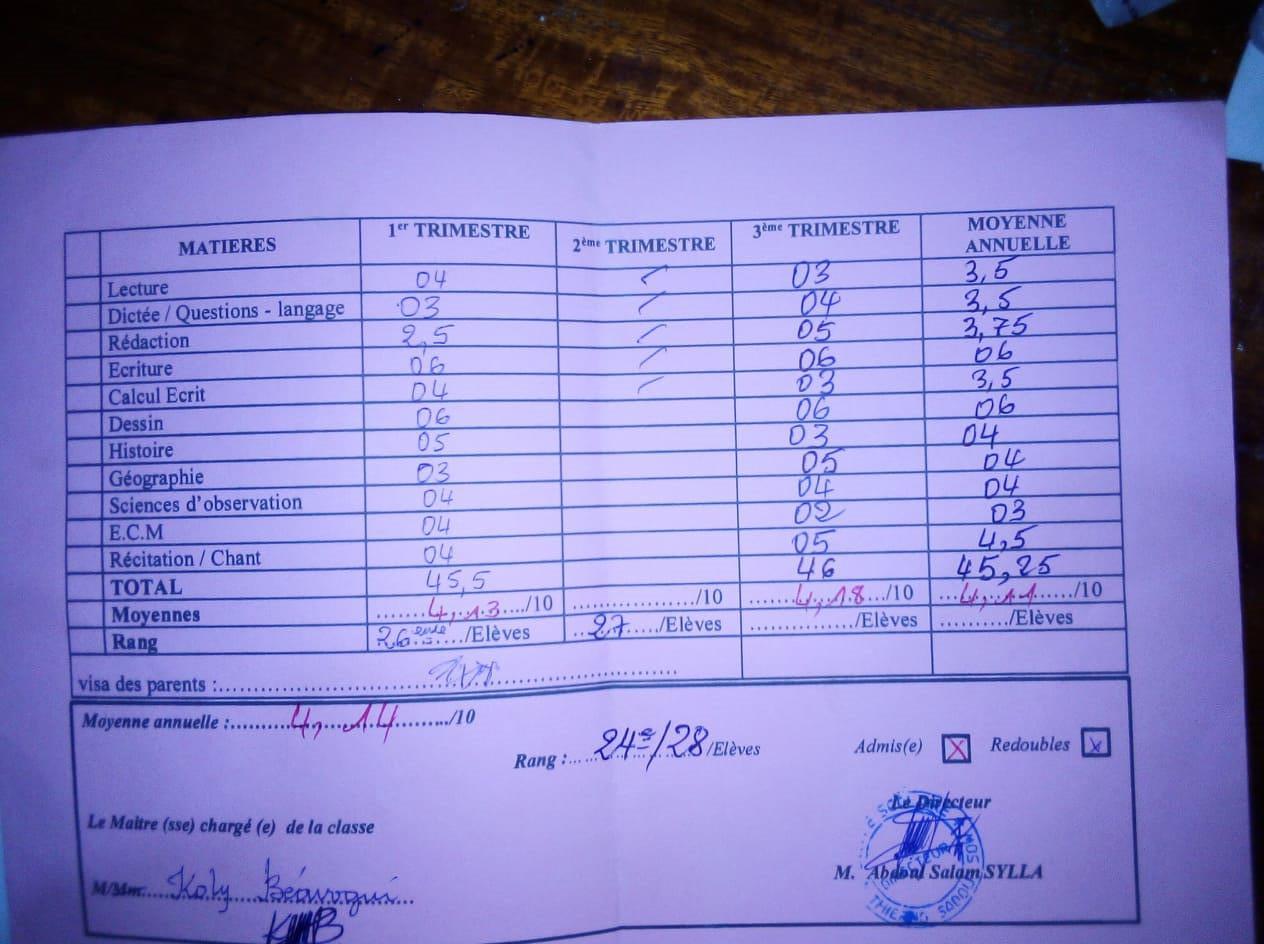 MATIERES 1er TRIMESTRE 2ème TRIMESTRE 3ème TRIMESTRE MOYENNE ANNUELLE
Lecture 04 03 3,5
Dictée / Questions - langage 03 04 3,5
Rédaction 2,5 05 3,75
Ecriture 06 06 06
Calcul Ecrit 04 03 3,5
Dessin 06 06 06
Histoire 05 03 04
Géographie 03 05 04
Sciences d'observation 04 04 04
E.C.M 04 02 03
Récitation / Chant 04 05 4,5
TOTAL 45,5 46 45,25
Moyennes 4,13/10 /10 4,18/10 4,11/10
Rang 26eme/Elèves 27/Elèves /Elèves /Elèves
visa des parents :
Moyenne annuelle : 4,14/10
Rang : 24e/28/Elèves Admis(e) X Redoubles X
Le Directeur
Le Maître (sse) chargé (e) de la classe
M. Abdoul Salam SYLLA
M/Mme Koly Béavogui
DIRECTEUR